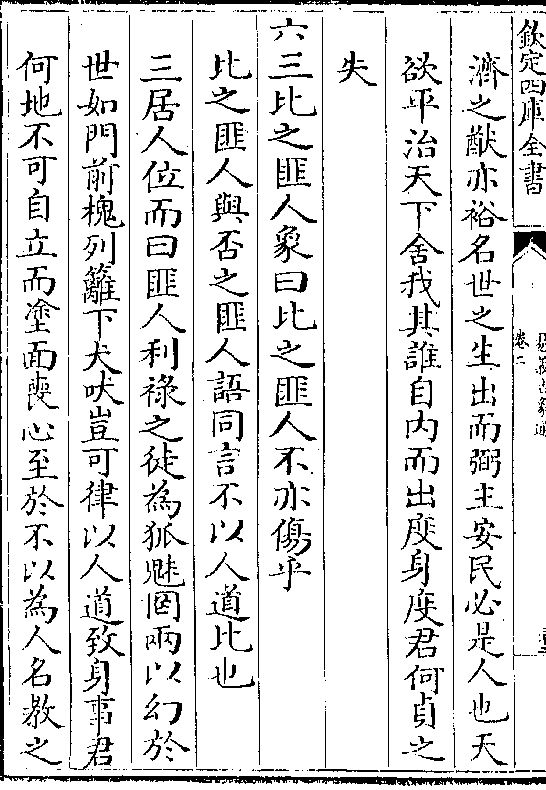 欽定四庫全書
卷二
濟之猷亦裕名世之生出而弼主安民必是人也天
欲平治天下舍我其誰自内而出度身度君何貞之
失
六三比之匪人象曰比之匪人不亦傷乎
比之匪人與否之匪人語同言不以人道比也
三居人位而曰匪人利祿之徒為狐魅罔兩以幻於
世如門前槐列籬下犬吠豈可律以人道致身事君
何地不可自立而塗面喪心至於不以為人名教之